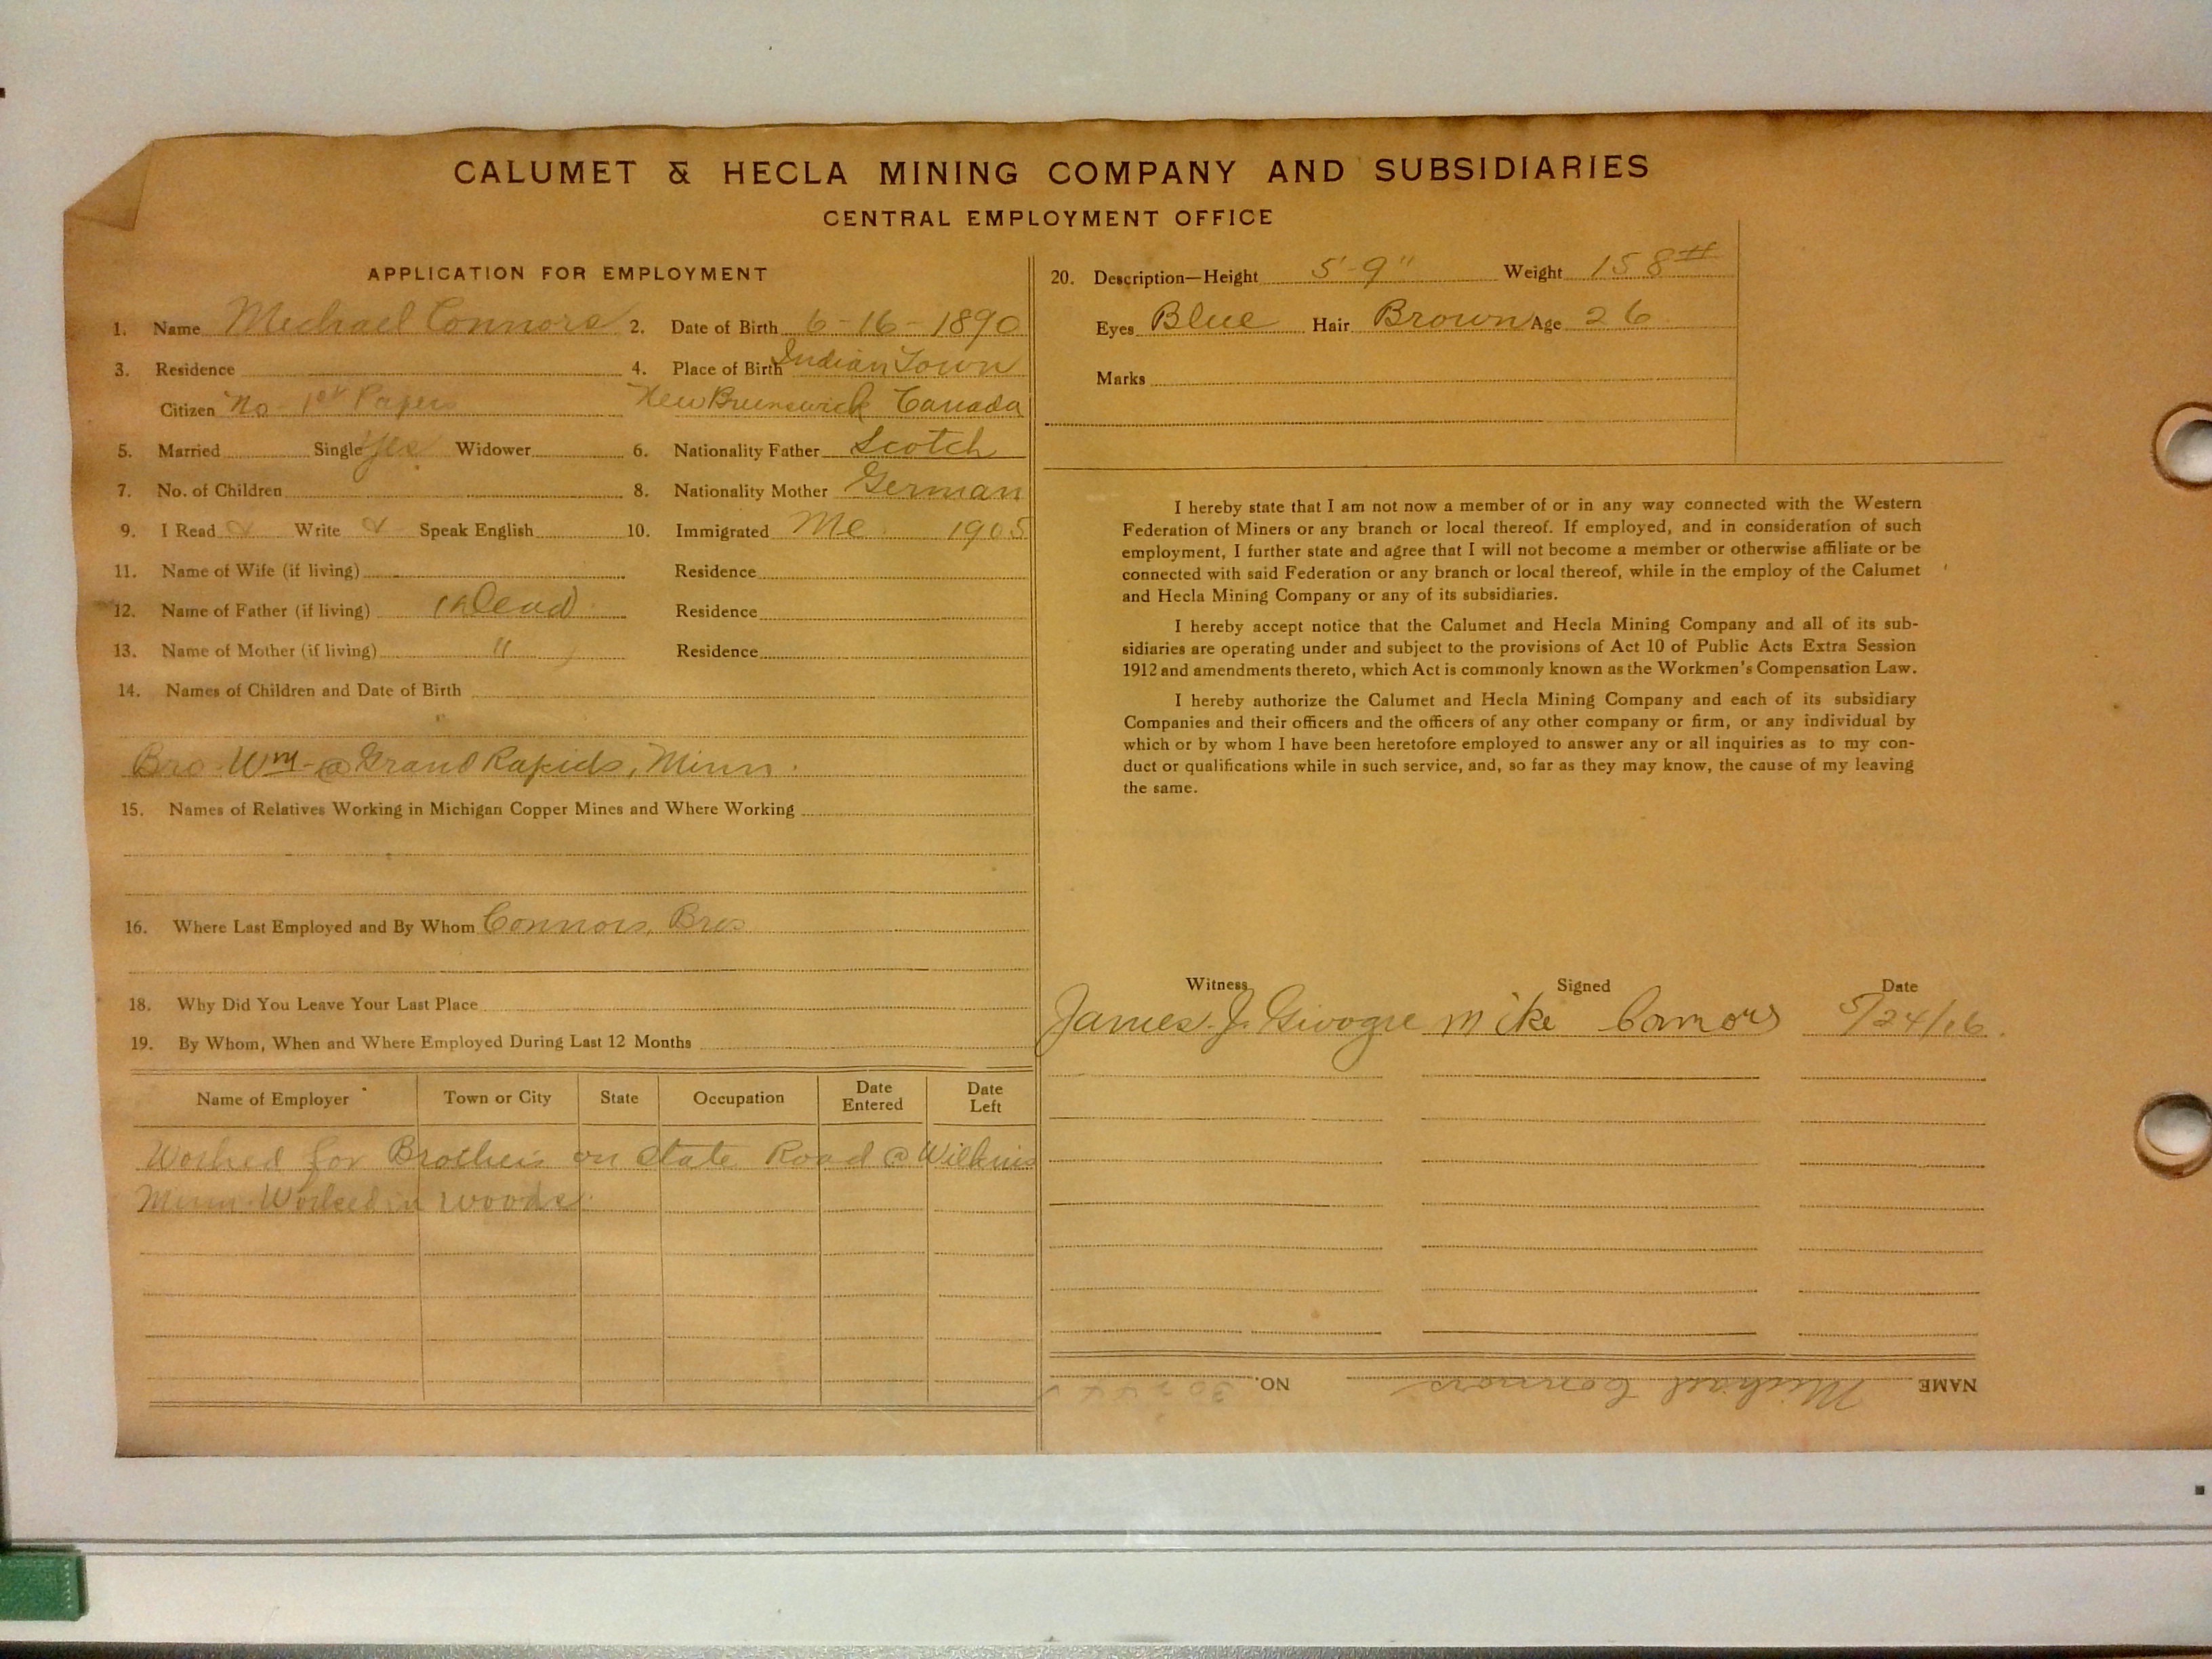 CALUMET & HECLA MINING COMPANY AND SUBSIDIARIES
CENTRAL EMPLOYMENT OFFICE
APPLICATION FOR EMPLOYMENT
1. Name Michael Connors 2. Date of Birth 6-16-1890
3. Residence 4. Place of Birth Indian Town
Citizen No 1st Papers New Brunswick Canada
5. Married Single Yes Widower 6. Nationality Father Scotch
7. No. of Children 8. Nationality Mother German
9. I Read Write Speak English 10. Immigrated Me. 1905
11. Name of Wife (if living) Residence
12. Name of Father (if living) Dead Residence
13. Name of Mother (if living) " Residence
14. Names of Children and Date of Birth
Bro Wm - @ Grand Rapids, Minn.
15. Names of Relatives Working in Michigan Copper Mines and Where Working
16. Where Last Employed and By Whom Connors, Bros
18. Why Did You Leave Your Last Place
19. By Whom, When and Where Employed During Last 12 Months
Name of Employer Town or City State Occupation Date Entered Date Left
Worked for Brothers on State Road @
Minn. Worked in woods.
20. Description—Height 5'-9" Weight 158#
Eyes Blue Hair Brown Age 26
Marks
I hereby state that I am not now a member of or in any way connected with the Western
Federation of Miners or any branch or local thereof. If employed, and in consideration of such
employment, I further state and agree that I will not become a member or otherwise affiliate or be
connected with said Federation or any branch or local thereof, while in the employ of the Calumet
and Hecla Mining Company or any of its subsidiaries.
I hereby accept notice that the Calumet and Hecla Mining Company and all of its sub-
sidiaries are operating under and subject to the provisions of Act 10 of Public Acts Extra Session
1912 and amendments thereto, which Act is commonly known as the Workmen's Compensation Law.
I hereby authorize the Calumet and Hecla Mining Company and each of its subsidiary
Companies and their officers and the officers of any other company or firm, or any individual by
which or by whom I have been heretofore employed to answer any or all inquiries as to my con-
duct or qualifications while in such service, and, so far as they may know, the cause of my leaving
the same.
Witness Signed Date
James J. Mike Connors 5/24/16.
NAME Michael Connors NO.